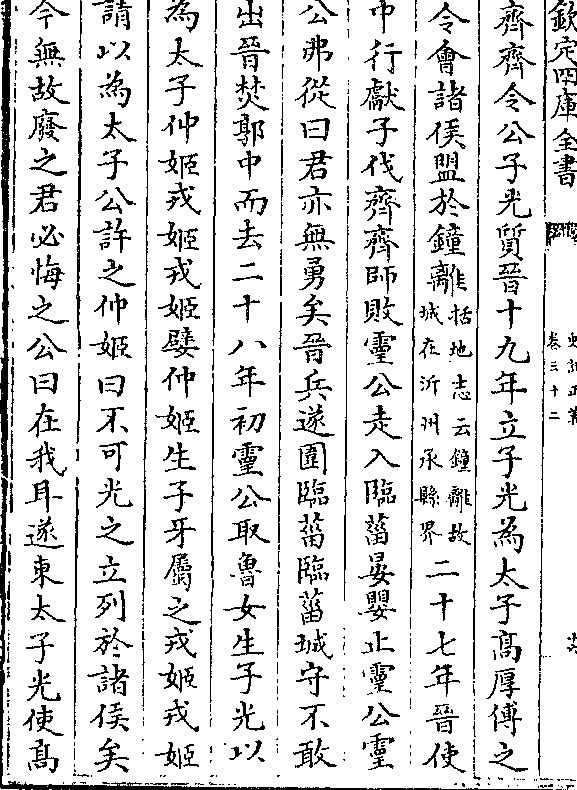 欽定四庫全書
史記正義
卷三十二
齊齊令公子光質晉十九年立子光為太子髙厚傅之
令會諸侯盟於鐘離括地志云鐘離故城在沂州承縣界二十七年晉使
中行獻子伐齊齊師敗靈公走入臨菑晏嬰止靈公靈
公弗從曰君亦無勇矣晉兵遂圍臨菑臨菑城守不敢
出晉焚郭中而去二十八年初靈公取魯女生子光以
為太子仲姬戎姬戎姬嬖仲姬生子牙屬之戎姬戎姬
請以為太子公許之仲姬曰不可光之立列於諸侯矣
今無故廢之君必悔之公曰在我耳遂東太子光使髙